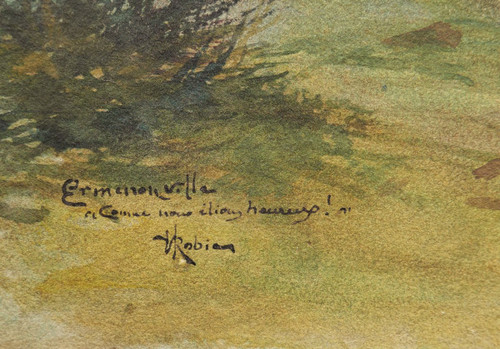 Ermenonville
« Comme nous étions heureux! »
VRobien